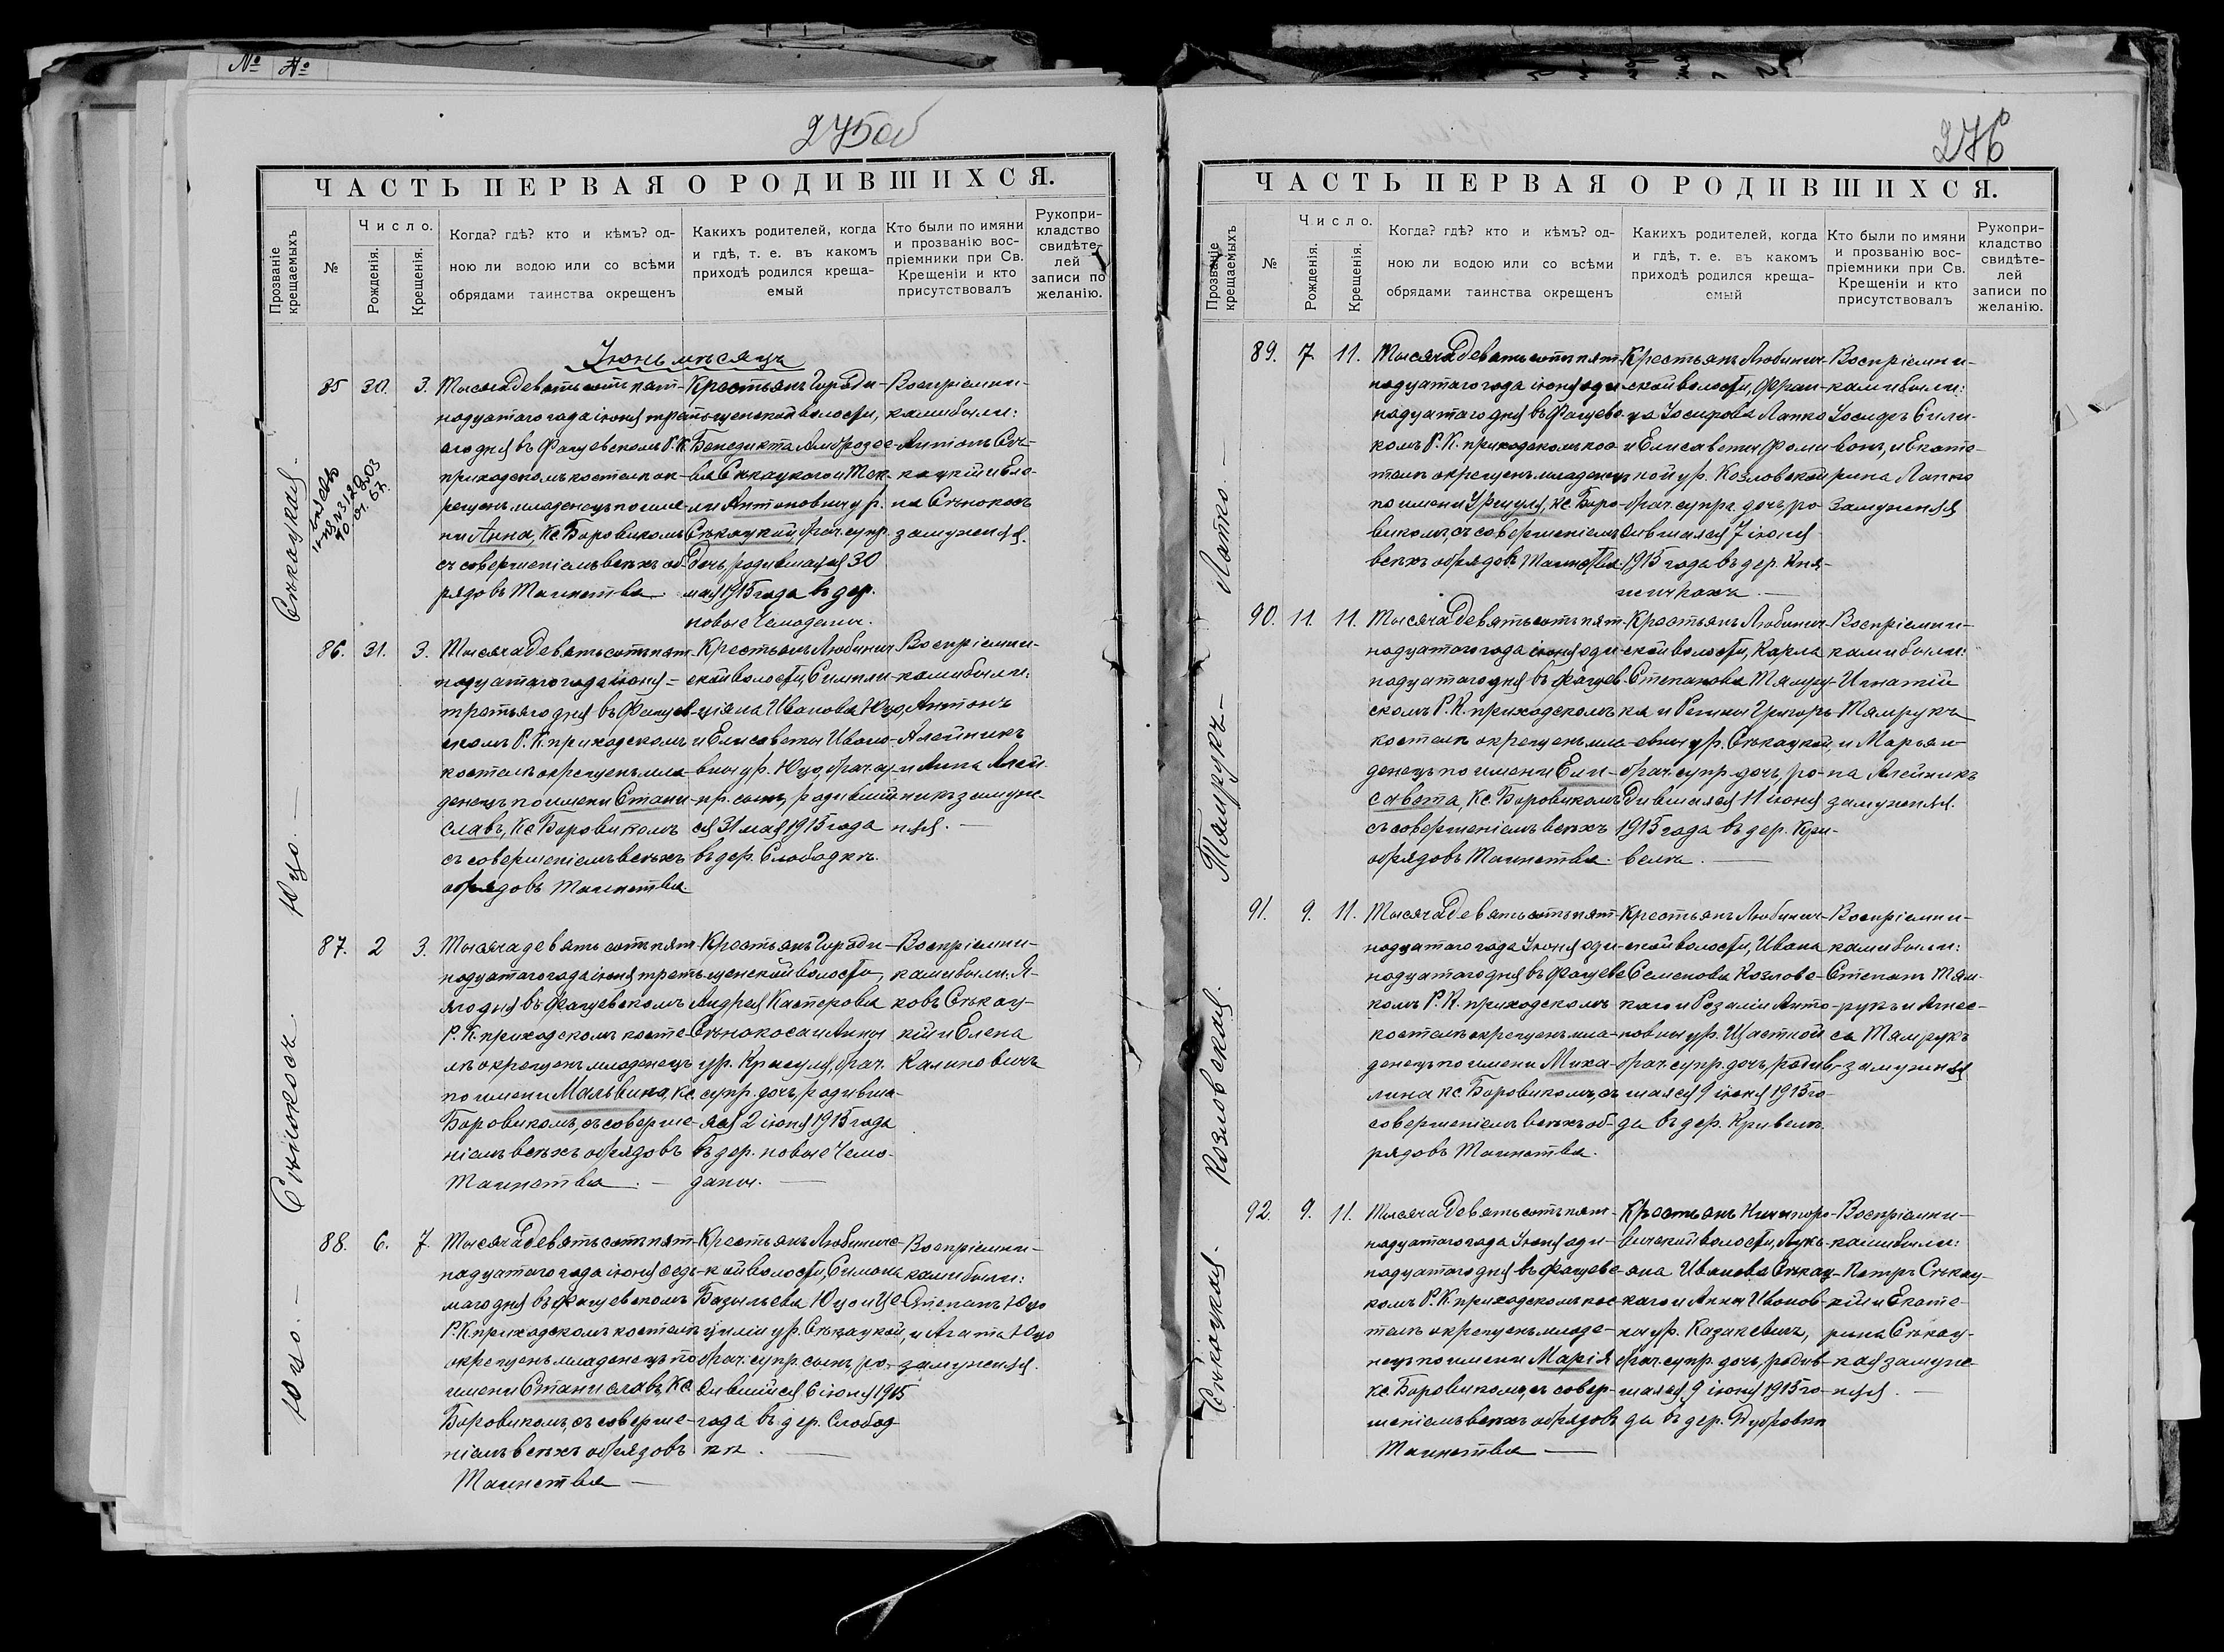 № №
275об
ЧАСТЬ ПЕРВАЯ О РОДИВШИХСЯ.
Прозваніе крещаемыхъ
№
Число.
Рожденія.
Крещенія.
Когда? гдѣ? кто и кѣмъ? од-
ною ли водою или со всѣми
обрядами таинства окрещенъ
Какихъ родителей, когда
и гдѣ, т. е. въ какомъ
приходѣ родился креща-
емый
Кто были по имяни
и прозванію вос-
пріемники при Св.
Крещеніи и кто
присутствовалъ
Рукопри-
кладство
свидѣте-
лей
записи по
желанію.
Іюнь мѣсяцъ
Сѣкацкая.
85 30. 3.
Тысяча девятьсотъ пят-
надцатаго года іюня треть-
яго дня въ Фащевскомъ Р. К.
приходскомъ костелѣ ок-
рещенъ младенецъ по име-
ни Анна, Кс. Боровикомъ
съ совершеніемъ всѣхъ об-
рядовъ Таинства.
Крестьянъ Городи-
щенской волости,
Бенедикта Амброзое-
ва Сѣкацкого и Тек-
ли Антоновны ур.
Сѣкацкой, брач. супр.
дочь, родившаяся 30
мая 1915 года въ дер.
новые Чемоданы.
Воспріемни-
ками были:
Антонъ Сѣ-
кацкій и Еле-
на Сѣнокосъ
замужняя.
Юцо.
86. 31. 3.
Тысяча девятьсотъ пят-
надцатаго года іюня =
третьяго дня въ Фащев-
скомъ Р. К. приходскомъ
костелѣ окрещенъ мла-
денецъ по имени Стани-
славъ, Кс. Боровикомъ
съ совершеніемъ всѣхъ
обрядовъ Таинства.
Крестьянъ Любинич-
ской волости, Симпли-
ціяна Иванова Юцо
и Елисаветы Ивано-
вны ур. Юцо, брач. су-
пр. сынъ, родивший-
ся 31 мая 1915 года
въ дер. Слободкѣ.
Воспріемни-
ками были:
Антонъ
Алейникъ
и Анна Алей-
никъ замуж-
няя.
Сѣнокосъ.
87. 2 3.
Тысяча девятьсотъ пят-
надцатаго года іюня треть-
яго дня въ Фащевскомъ
Р. К. приходскомъ косте-
лѣ окрещенъ младенецъ
по имени Мальвина, Кс.
Боровикомъ, съ соверше-
ніемъ всѣхъ обрядовъ
Таинства.
Крестьянъ Городи-
щенской волости,
Андрея Касперова
Сѣнокоса и Анны
ур. Красуля, брач.
супр. дочь, родивша-
яся 2 іюня 1915 года
въ дер. новые Чемо-
даны.
Воспріемни-
ками были: Я-
ковъ Сѣкац-
кій и Елена
Калиновичъ
Юцо.
88. 6. 7.
Тысяча девятьсотъ пят-
надцатаго года іюня седь-
маго дня въ Фащевскомъ
Р. К. приходскомъ костелѣ
окрещенъ младенецъ по
имени Станиславъ Кс.
Боровикомъ, съ соверше-
ніемъ всѣхъ обрядовъ
Таинства
Крестьянъ Любиничс-
кой волости, Симона
Базыльева Юцо и Це-
циліи ур. Сѣкацкой,
брач. супр. сынъ, ро-
дившійся 6 іюня 1915
года въ дер. Слобод-
кѣ.
Воспріемни-
ками были:
Степанъ Юцо
и Агата Юцо
замужняя.
276
ЧАСТЬ ПЕРВАЯ О РОДИВШИХСЯ.
Прозваніе крещаемыхъ
№
Число.
Рожденія.
Крещенія.
Когда? гдѣ? кто и кѣмъ? од-
ною ли водою или со всѣми
обрядами таинства окрещенъ
Какихъ родителей, когда
и гдѣ, т. е. въ какомъ
приходѣ родился креща-
емый
Кто были по имяни
и прозванію вос-
пріемники при Св.
Крещеніи и кто
присутствовалъ
Рукопри-
кладство
свидѣте-
лей
записи по
желанію.
Лапко.
89. 7 11.
Тысяча девятьсотъ пят-
надцатаго года іюня оди-
надцатаго дня въ Фащевс-
комъ Р. К. приходскомъ кос-
телѣ окрещенъ младенецъ
по имени Уршуля, Кс. Боро-
викомъ, съ совершеніемъ
всѣхъ обрядовъ Таинства.
Крестьянъ Любинич-
ской волости, Фран-
ца Іосифова Лапко
и Елисаветы Фоми-
ной ур. Козловской
брач. супр. дочь, ро-
дившаяся 7 іюня
1915 года въ дер. Кня-
жичкахъ.
Воспріемни-
ками были:
Іосифъ Сили-
вонъ, и Екате-
рина Лапко
замужняя
Тямрукъ
90. 11. 11.
Тысяча девятьсотъ пят-
надцатаго года іюня оди-
надцатаго дня въ Фащев-
скомъ Р. К. приходскомъ
костелѣ окрещенъ мла-
денецъ по имени Ели-
савета, Кс. Боровикомъ
съ совершеніемъ всѣхъ
обрядовъ Таинства.
Крестьянъ Любинич-
ской волости, Карла
Степанова Тямру-
ка и Регины Григорь-
евны ур. Сѣкацкой,
брач. супр. дочь, ро-
дившаяся 11 іюня
1915 года въ дер. Кри-
велѣ.
Воспріемни-
ками были:
Игнатій
Тямрукъ
и Марьян-
на Алейникъ
замужняя.
Козловская.
91. 9. 11.
Тысяча девятьсотъ пят-
надцатаго года Іюня оди-
надцатаго дня въ Фащевс-
комъ Р. К. приходскомъ
костелѣ окрещенъ мла-
денецъ по имени Миха-
лина Кс. Боровикомъ, съ
совершеніемъ всѣхъ об-
рядовъ Таинства.
Крестьянъ Любинич-
ской волости, Ивана
Семенова Козловс-
каго и Розаліи Анто-
новны ур. Щастной
брач. супр. дочь, родив-
шаяся 9 іюня 1915 го-
да въ дер. Кривелѣ.
Воспріемни-
ками были:
Степанъ Тям-
рукъ и Агнес-
са Тямрукъ
замужняя
Сѣкацкая.
92. 9. 11.
Тысяча девятьсотъ пят-
надцатаго года Іюня оди-
надцатаго дня въ Фащевс-
комъ Р. К. приходскомъ кос-
телѣ окрещенъ младе-
нецъ по имени Марія
Кс. Боровикомъ, съ совер-
шеніемъ всѣхъ обрядовъ
Таинства
Крестьянъ Ничипоро-
вичской волости, Лукь-
яна Иванова Сѣкац-
каго и Анны Иванов-
ны ур. Казакевичъ,
брач. супр. дочь, родив-
шаяся 9 іюня 1915 го-
да въ дер. Дубровкѣ
Воспріемни-
ками были:
Петръ Сѣкац-
кій и Екате-
рина Сѣкац-
кая замуж-
няя.